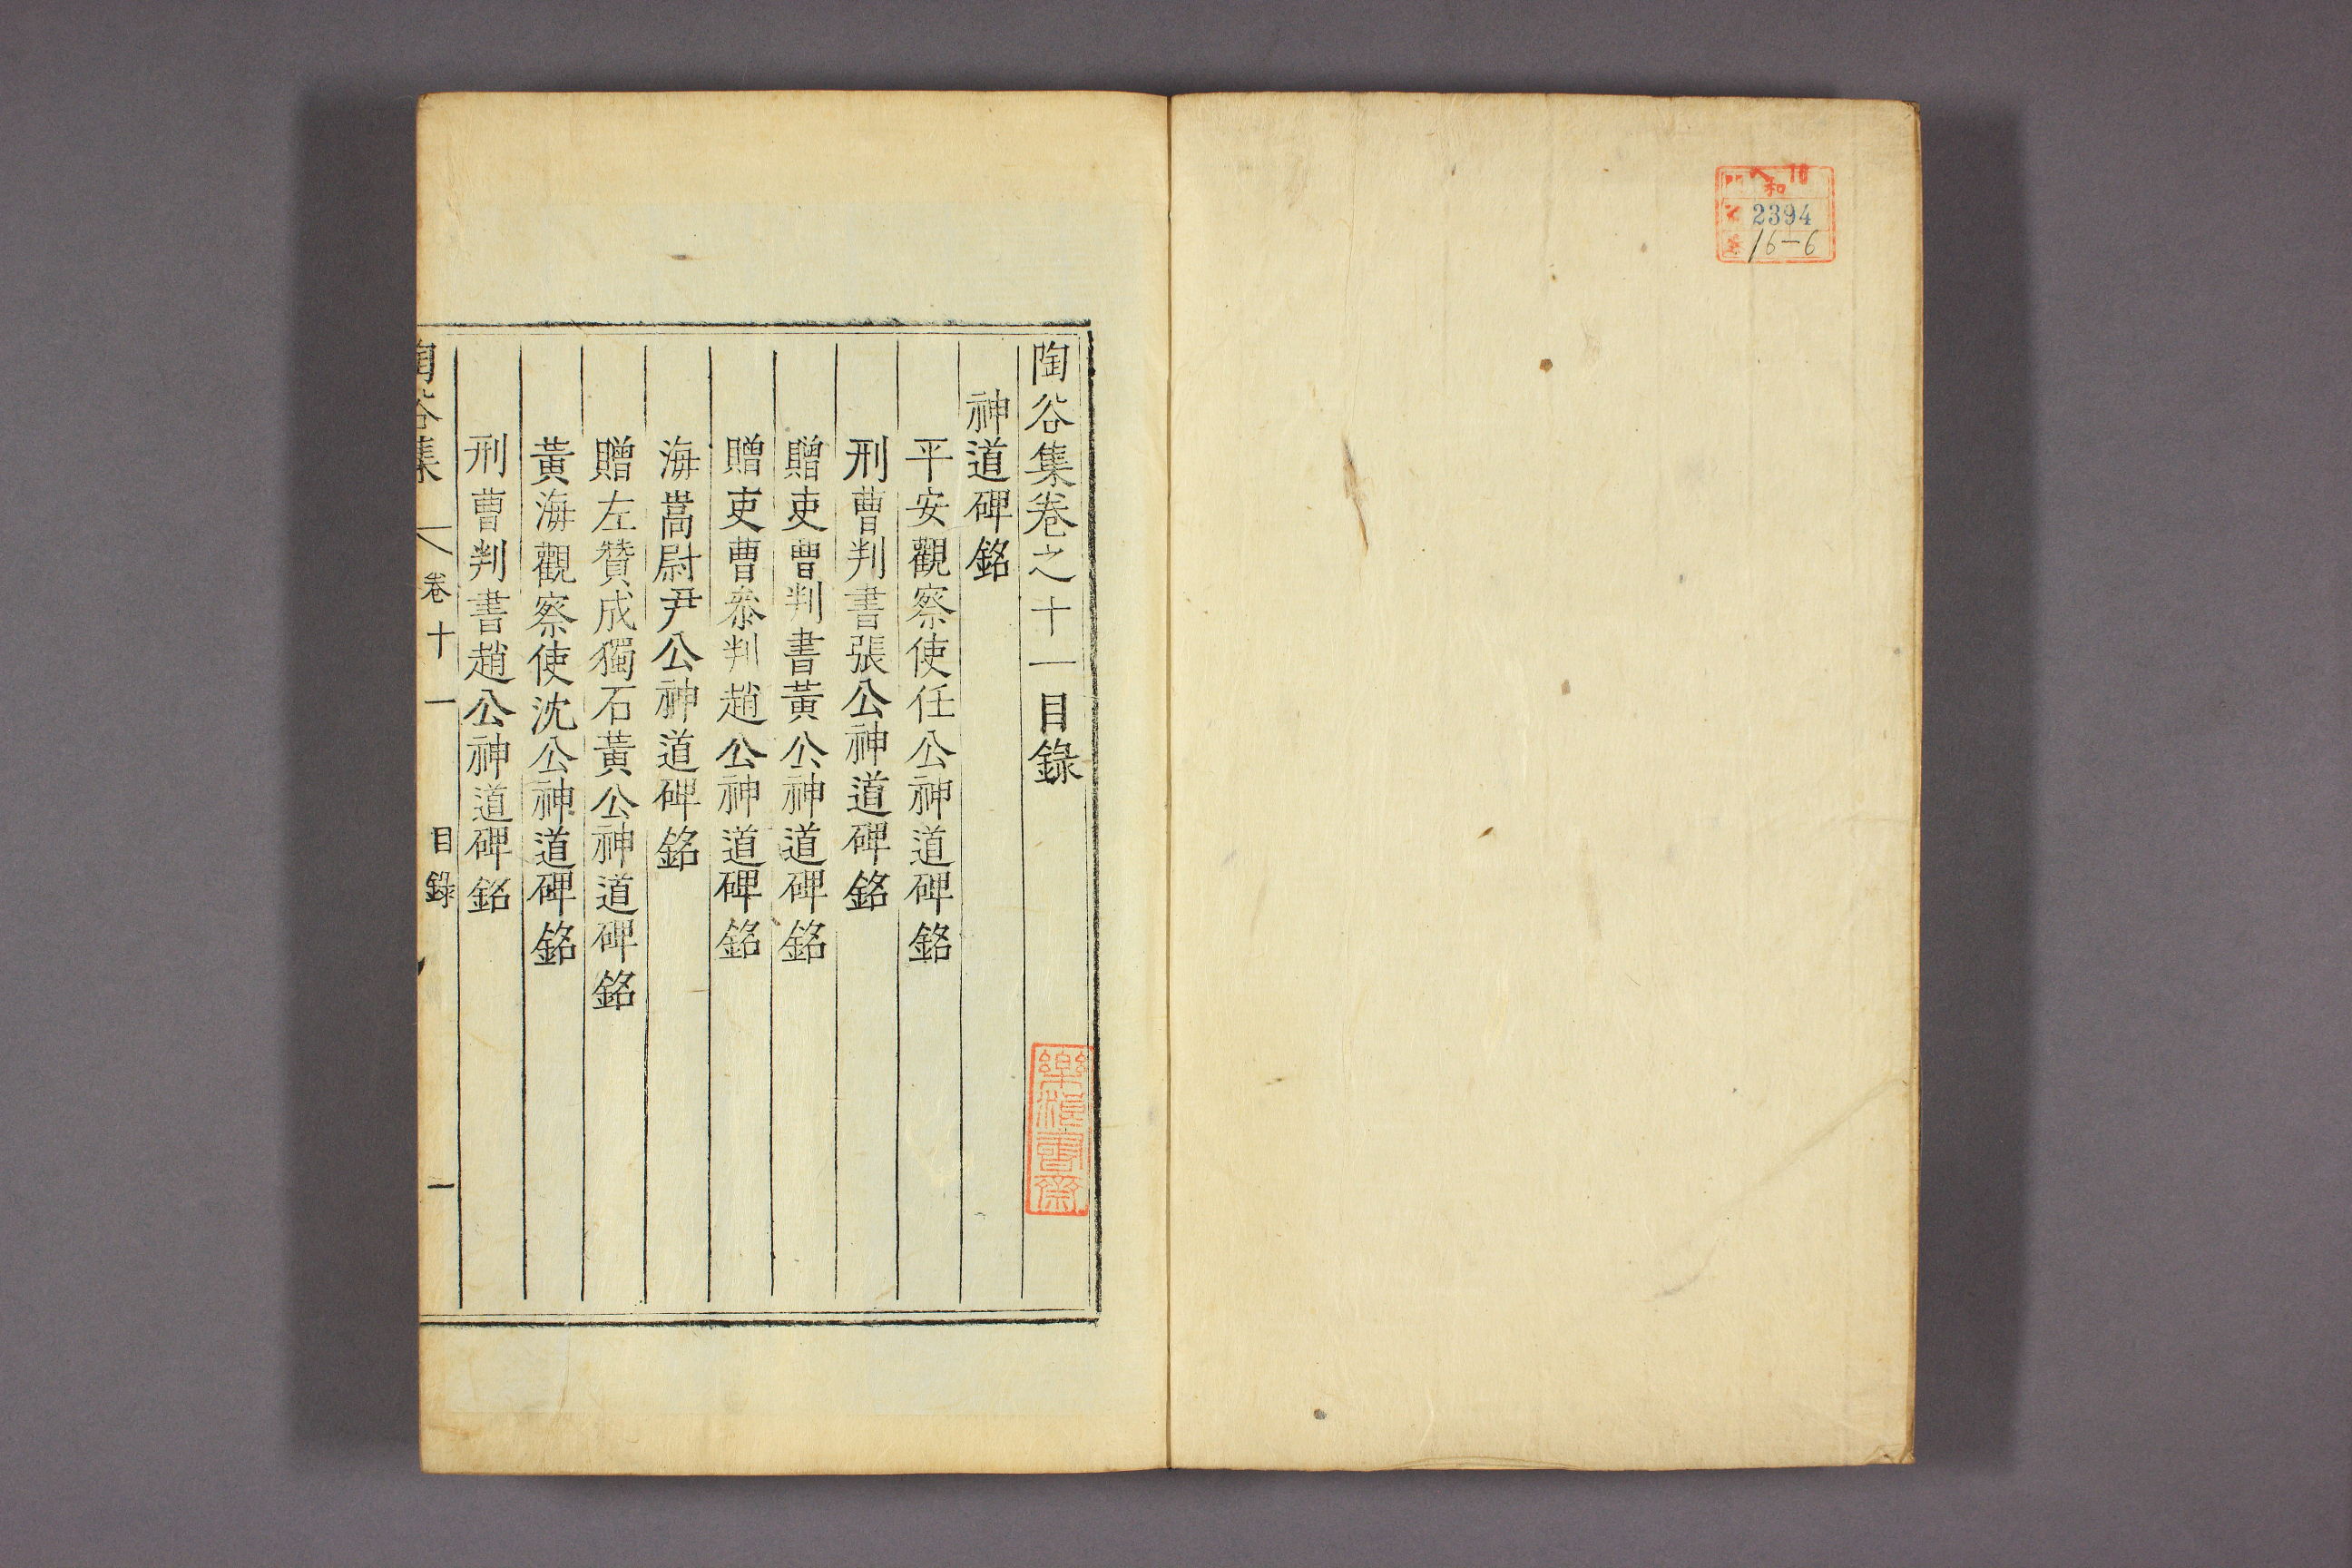 和
2394
16-6
陶谷集卷之十一目錄
神道碑銘
平安觀察使任公神道碑銘
刑曹判書張公神道碑銘
贈吏曹判書黃公神道碑銘
贈吏曹叅判趙公神道碑銘
海嵩尉尹公神道碑銘
贈左贊成獨石黃公神道碑銘
黃海觀察使沈公神道碑銘
刑曹判書趙公神道碑銘
陶谷集 卷十一 目錄 一